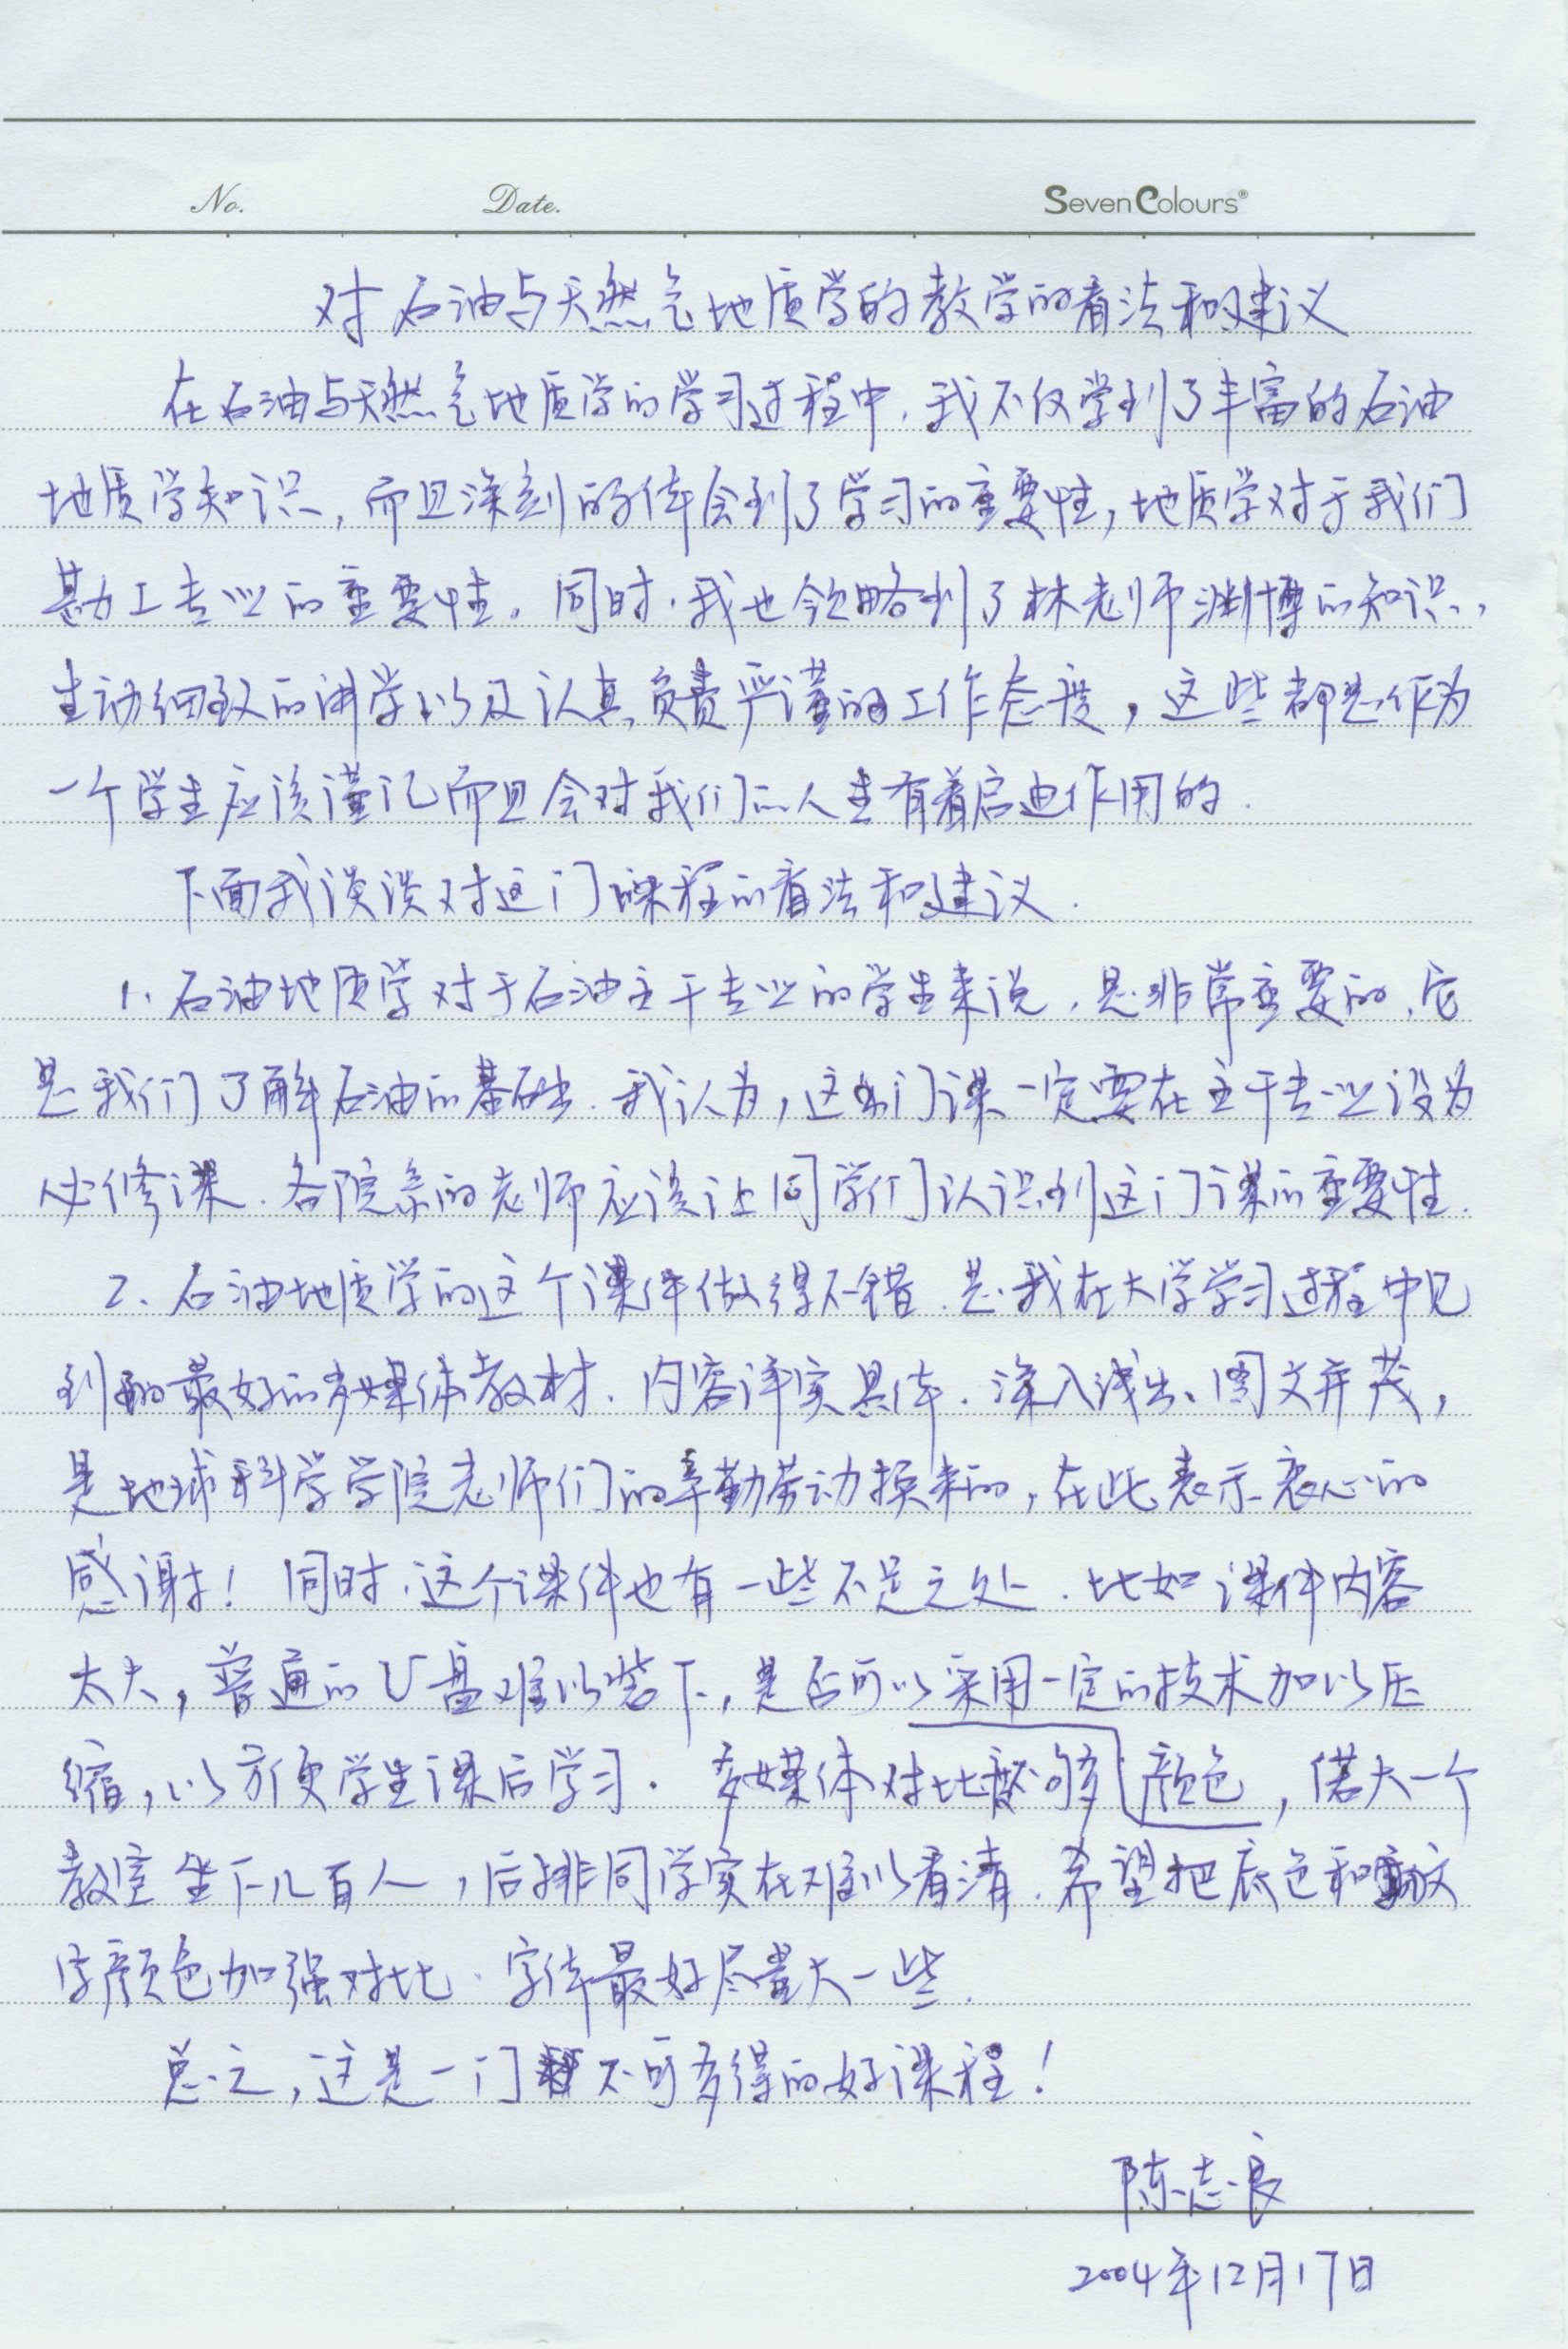 No. Date. SevenColours®
对石油与天然气地质学的教学的看法和建议
在石油与天然气地质学的学习过程中,我不仅学到了丰富的石油
地质学知识,而且深刻的体会到了学习的重要性,地质学对于我们
勘工专业的重要性。同时,我也领略到了林老师渊博的知识,
生动细致的讲学以及认真负责严谨的工作态度,这些都是作为
一个学生应该谨记而且会对我们的人生有着启迪作用的.
下面我谈谈对这门课程的看法和建议.
1、石油地质学对于石油主干专业的学生来说,是非常重要的,它
是我们了解石油的基础.我认为,这门课一定要在主干专业设为
必修课.各院系的老师应该让同学们认识到这门课的重要性.
2、石油地质学的这个课件做得不错.是我在大学学习过程中见
到的最好的多媒体教材.内容详实具体.深入浅出、图文并茂,
是地球科学学院老师们的辛勤劳动换来的,在此表示衷心的
感谢!同时,这个课件也有一些不足之处.比如课件内容
太大,普通的U盘难以装下,是否可以采用一定的技术加以压
缩,以方便学生课后学习.多媒体对比不够颜色,偌大一个
教室坐下几百人,后排同学实在难以看清.希望把底色和文
字颜色加强对比.字体最好尽量大一些.
总之,这是一门不可多得的好课程!
陈志良
2004年12月17日